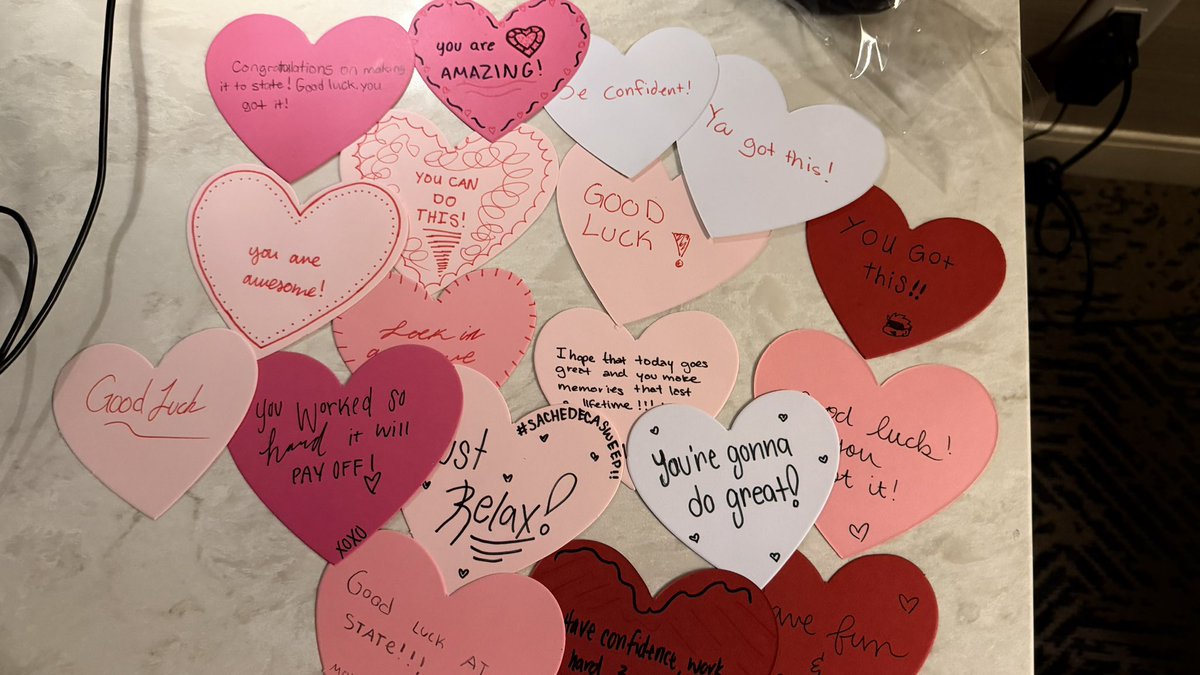 Congratulations on making
it to state! Good luck, you
got it!
you are
AMAZING!
be confident!
Ya got this!
YOU CAN
DO
THIS!
GOOD
LUCK!
You Got
this!!
you are
awesome!
Lock in
I hope that today goes
great and you make
memories that last
a lifetime!!!
Good Luck
You Worked so
hard it will
PAY OFF!
XOXO
Just
Relax!
#SACHEDECASWEEP!!
You're gonna
do great!
Good luck!
you
got it!
Good LUCK AT
STATE!!!
Have confidence, work
hard &
Have fun
&